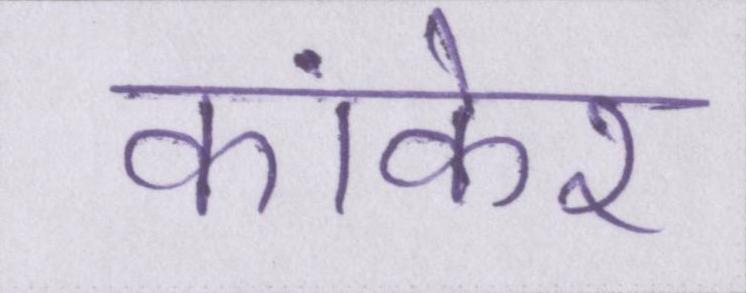 कांकेर